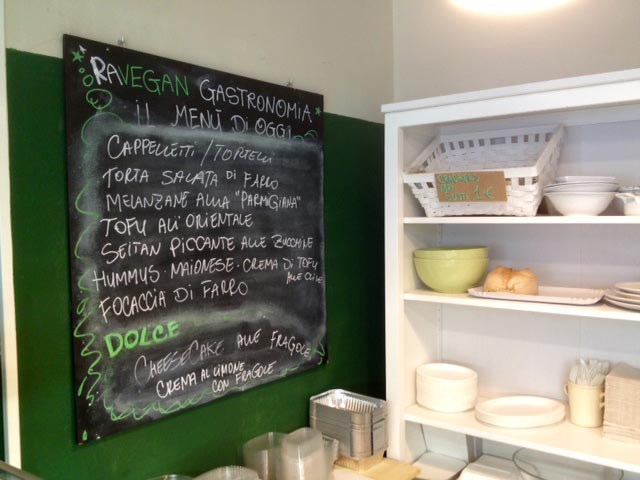 RAVEGAN GASTRONOMIA
IL MENÙ DI OGGI
CAPPELLETTI / TORTELLI
TORTA SALATA DI FARRO
MELANZANE ALLA "PARMIGIANA"
TOFU ALL'ORIENTALE
SEITAN PICCANTE ALLE ZUCCHINE
HUMMUS · MAIONESE · CREMA DI TOFU
ALLE OLIVE
FOCACCIA DI FARRO
DOLCE
CHEESECAKE ALLE FRAGOLE
CREMA AL LIMONE
CON FRAGOLE
1€